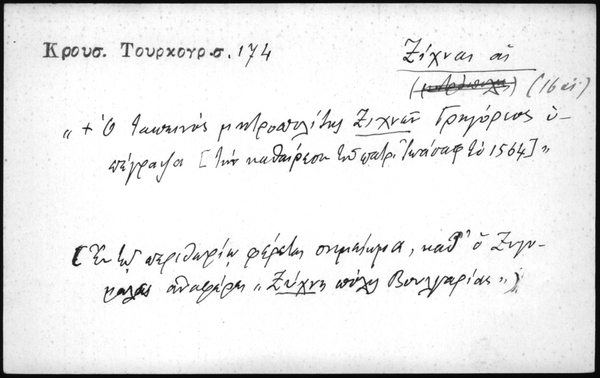 Κρουσ. Τουρκογρ.σ. 174
Ζίχναι αἱ
(μητρόπολις) (16 αἰ.)
„ + Ὁ ταπεινὸς μητροπολίτης Ζιχνῶν Γρηγόριος ὑ-
πέγραψα [τὴν καθαίρεσιν τοῦ πατρ. Ἰωάσαφ τῷ 1564] "
(Ἐν τῷ περιθωρίῳ φέρεται σημείωμα, καθ' ὃ Ζυγο-
μαλᾶς ἀναφέρει „ Ζίχνη πόλις Βουλγαρίας ")